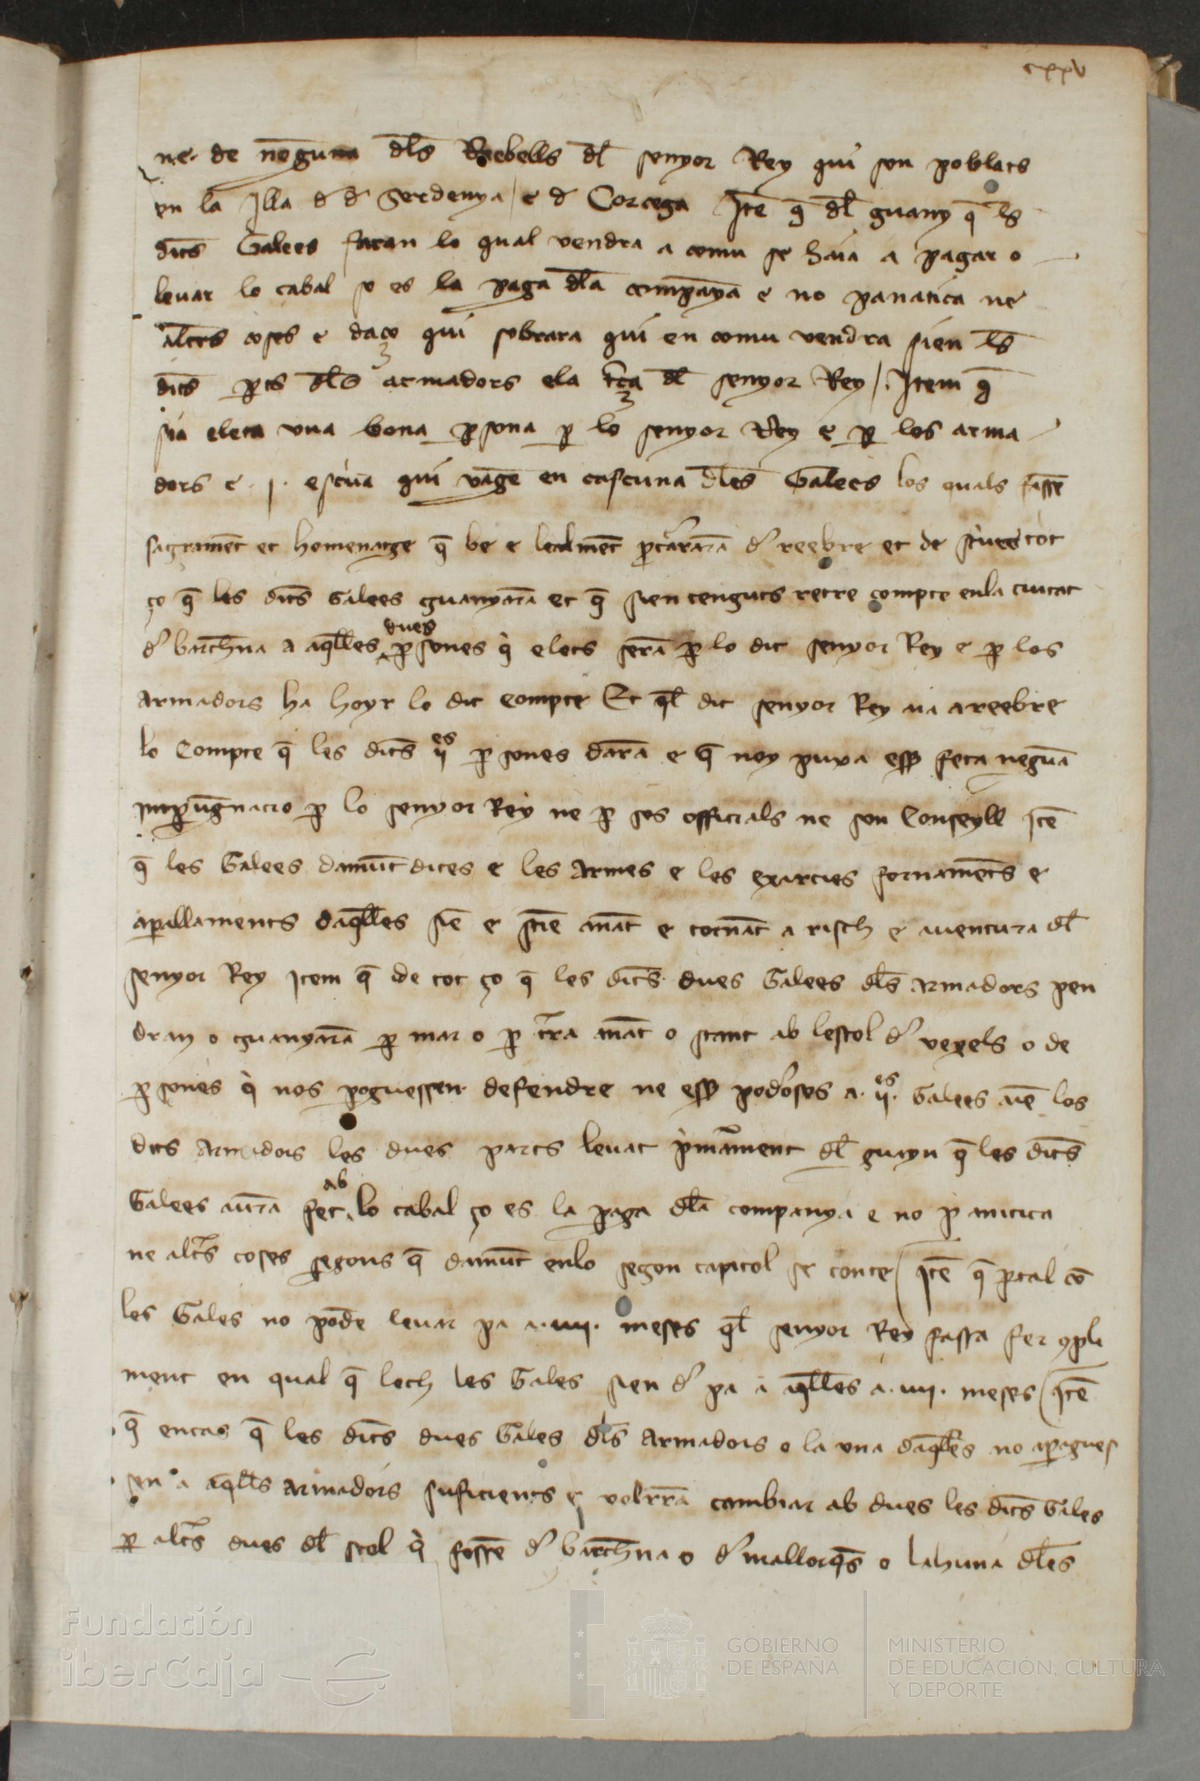 cxxv
ne de neguna dls Reebells dl senyor Rey qui son poblats
en la Illa d d Serdenya / e d Corcega Ite q dl guany q ls
dits Galees faran lo qual vendra a comu se haia a pagar o
levar lo cabal so es la paga dla companya e no panatica ne
altres coses e daço qui sobrara qui en comu vendra sien ls
dits pts dls armadors e la tca dl senyor Rey /. Item q
sia eleta una bona psona p lo senyor Rey e p los arma
dors e .j. escriva qui vage en cascuna dles Galees los quals fassen
sagrament et homenatge q be e lealment pcuraran d reebre et de scriure tot
ço q les dits Galees guanyaran et q sien tenguts retre compte en la ciutat
d barchna a aqlles dues psones q elets seran p lo dit senyor Rey e p los
armadors ha hoyr lo dit compte Et ql dit senyor Rey aia a reebre
lo Compte q les dits ij es psones daran e q noy puxa esser feta neguna
inpugnacio p lo senyor Rey ne p ses officials ne son Conseyll ite
q les Galees damunt dites e les Armes e les exarcies fornaments e
aparellaments daqlles sien e stien anant e tornant a risch e aventura dl
senyor Rey Item q de tot ço q les dits dues Galees dls armadors pen
dran o guanyaran p mar o p terra anant o stant ab lestol d vexels o de
psones q nos poguessen defendre ne esser poderoses a .ij es. Galees aien los
dits Armadors les dues parts levat pmerament dl guayn q les dits
Galees auran fet ab lo cabal ço es la paga dla companya e no panatica
ne altres coses segons q damunt en lo segon capitol se conte / ite q ptal co
les Gales no poden levar pa a .iiij. meses ql senyor Rey fassa fer compli
ment en qual q loch les Gales sien d pa a aqlles a .iiij. meses / ite
q en cas q les dits dues Gales dls Armadors o la una daqlles no apagues
sen a aqlls armadors suficients e volrran cambiar ab dues les dits Gales
p altres dues dl stol q fossen d barchna o d mallorqs o la huna dles
Fundación
iberCaja
GOBIERNO
DE ESPAÑA
MINISTERIO
DE EDUCACIÓN, CULTURA
Y DEPORTE